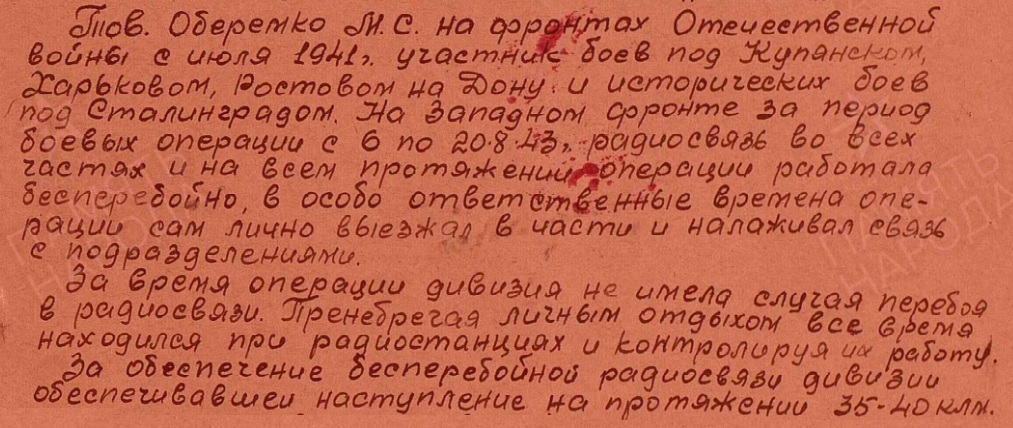 Тов. Оберемко М.С. на фронтах Отечественной
войны с июля 1941г. участник боев под Купянском,
Харьковом, Ростовом на Дону и исторических боев
под Сталинградом. На Западном фронте за период
боевых операции с 6 по 20.8.43г. радиосвязь во всех
частях и на всем протяжении операции работала
бесперебойно, в особо ответственные времена опе-
рации сам лично выезжал в части и налаживал связь
с подразделениями.
За время операции дивизия не имела случая перебоя
в радиосвязи. Пренебрегая личным отдыхом все время
находился при радиостанциях и контролируя их работу.
За обеспечение бесперебойной радиосвязи дивизии
обеспечивавшей наступление на протяжении 35-40 клм.
ПАМЯТЬ
НАРОДА